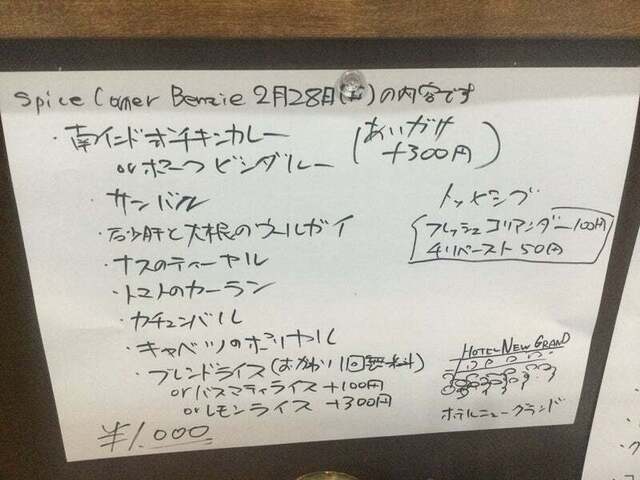 Spice Corner Benzie 2月28日(土)の内容です
・南インドチキンカレー
orポークビンダルー
(あいがけ
+300円)
・サンバル
・砂肝と大根のウールガイ
・ナスのティーヤル
・トマトのカーラン
・カチュンバル
・キャベツのポリヤル
・ブレンドライス(おかわり1回無料)
orバスマティライス +100円
orレモンライス +300円
¥1,000
トッピング
フレッシュコリアンダー100円
チリペースト50円
HOTEL NEW GRAND
ホテルニューグランド